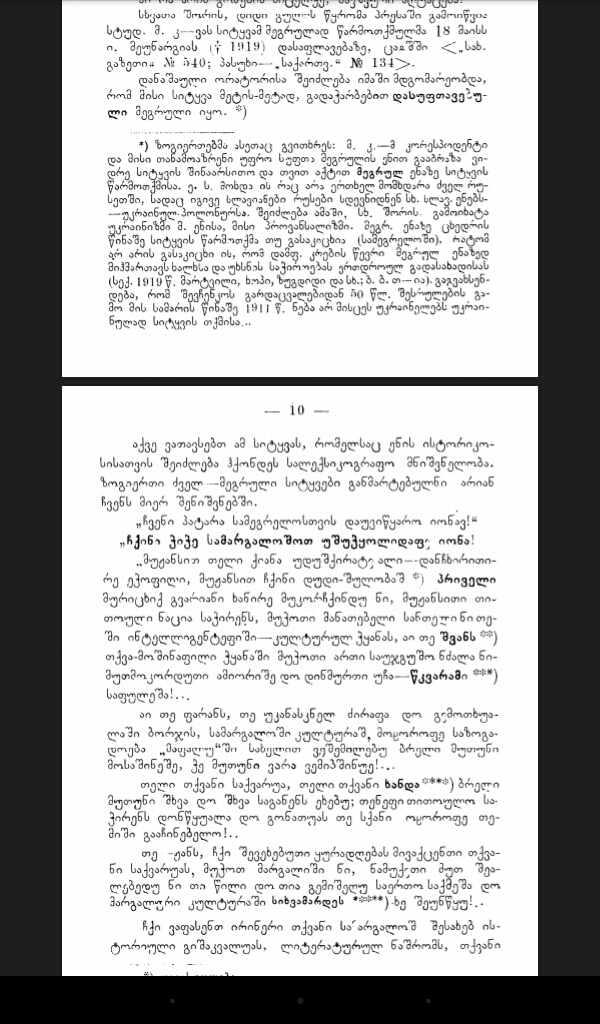 სხვათა შორის, დიდი გულის წყრომა პრესაში გამოიწვია
სტუდ. მ. კ—ვას სიტყვამ მეგრულად წარმოთქმულმა 18 მაისს
ი. მეუნარგიას († 1919) დასაფლავებაზე, ცაიშში <„სახ.
გაზეთი“ № 540; პასუხი—„საქართვ.“ № 134>.
დანაშაული ორატორისა შეიძლება იმაში მდგომარეობდა,
რომ მისი სიტყვა მეტის-მეტად, გადაჭარბებით დასუფთავებუ-
ლი მეგრული იყო. *)
*) ზოგიერთებმა ასეთაც გვითხრეს: მ. კ.—მ კორესპოდენტი
და მისი თანამოაზრენი უფრო სუფთა მეგრულის ენით გააბრაზა ვი-
დრე სიტყვის შინაარსითო და თვით აქტით მეგრულ ენაზე სიტყვის
წარმოთქმისა. ე. ს. მოხდა ის რაც არა ერთხელ მომხდარა ძველ რუ-
სეთში, სადაც იგივე სლავიანები რუსები სდევნიდნენ სხ. სლავ. ენებს-
—უკრაინულ-პოლონურსა. შეიძლება ამაში, სხ. შორის. გამოიხატა
უკრაინიზმი მ. ენისა, მისი პროვანსალიზმი. მეგრ. ენაზე ცხედრის
წინაშე სიტყვის წარმოთქმა თუ გასაკიცხია (სამეგრელოში), რატომ
არ არის გასაკიცხი ის, რომ დამფ. კრების წევრი მეგრულ ენაზედ
მიჰმართავს ხალხსა და უხსნის საჭიროებას ერთდროულ გადასახადისას
(სექ. 1919 წ. მარტვილი, ხოპი, ზუგდიდი და სხ.; ბ. ბ. თ—ია). გაგვახსენ-
დება, რომ შევჩენკოს გარდაცვალებიდან 50 წლ. შესრულების გა-
მო მის სამარის წინაშე 1911 წ. ნება არ მისცეს უკრაინელებს უკრაი-
ნულად სიტყვის თქმისა...
— 10 —
აქვე ვათავსებთ ამ სიტყვას, რომელსაც ენის ისტორიკო-
სისათვის შეიძლება ჰქონდეს სალექსიკოგრაფო მნიშვნელობა.
ზოგიერთი ძველ—მეგრული სიტყვები განმარტებულნი არიან
ჩვენს მიერ შენიშვნებში.
„ჩვენი პატარა სამეგრელოსთვის დაუვიწყარო იონავ!“
„ჩქინი ჭიჭე სამარგალოშოთ უშუჭყოლიდაფე იონა!
„მუჟანსით თელი ქიანა უდუშქირატე ალი—დანჩხირითი-
რე ეჸოფილი, მუჟანსით ჩქინი დუდი-შულობაშ *) პრიველი
მურიცხიქ გვარიანი ხანირე მუკორჩქინდუ ნი, მუჟანსითი თი-
თოული ნაცია საჭირენს, მუჭოთი მანათებელი სანთელი ნი თე-
ში ინტელლიგენტეფიში—კულტურულ ჭყანას, აი თე შვანს **)
თქვა-მოშინაფილი ჭყანაში მუჭოთი ართი საუჯგუშო ნძალა ნი-
მუთმოკორდუთი ამიორიშე დო დინმურთი უჩა—წკვარამი ***)
საფულეშა!...
აი თე ფარანს, თე უკანასკნელ ძირაფა დო გემოთხუა-
ლაში ბორჯის, სამარგალოში კულტურაშ, მოღოროფე საზოგა-
დოება „მაყალუ“ში სახელით ვეშემილებუ ბრელი მუთუნი
მოსაშინეშე, ჭე მუთუნი ვარა ვემიპშინუე!...
თელი თქვანი საქვარუა, თელი თქვანი ხანდა ****) ბრელი
მუთუნი შხვა დო შხვა საგანენს ეხებუ; თენეფი თითოულო სა-
ჭირენს დონწყუალა დო გონათუას თე სქანი ოღოროფე თე-
მიში გააჩინებელო!..
თე -ჟანს, ჩქი შევეხებუთი ყურადღებას მივაქცენთი თქვა-
ნი საქვარუას, მუჭოთ მარგალიში ნი, ნამუქეთი მუთ შეა-
ლებედუ ნი თი წილი დო თია გემიშელუ საერთო საქმეშა დო
მარგალური კულტურაში სიხვამარდეს *****)-ხე შეუნწყუ!..
ჩქი ვაფასენთ ირინერი თქვანი სამარგალოშ შესახებ ის-
ტორიული გიშაკვალუას, ლიტერატურულ ნაშრომს, თქვანი